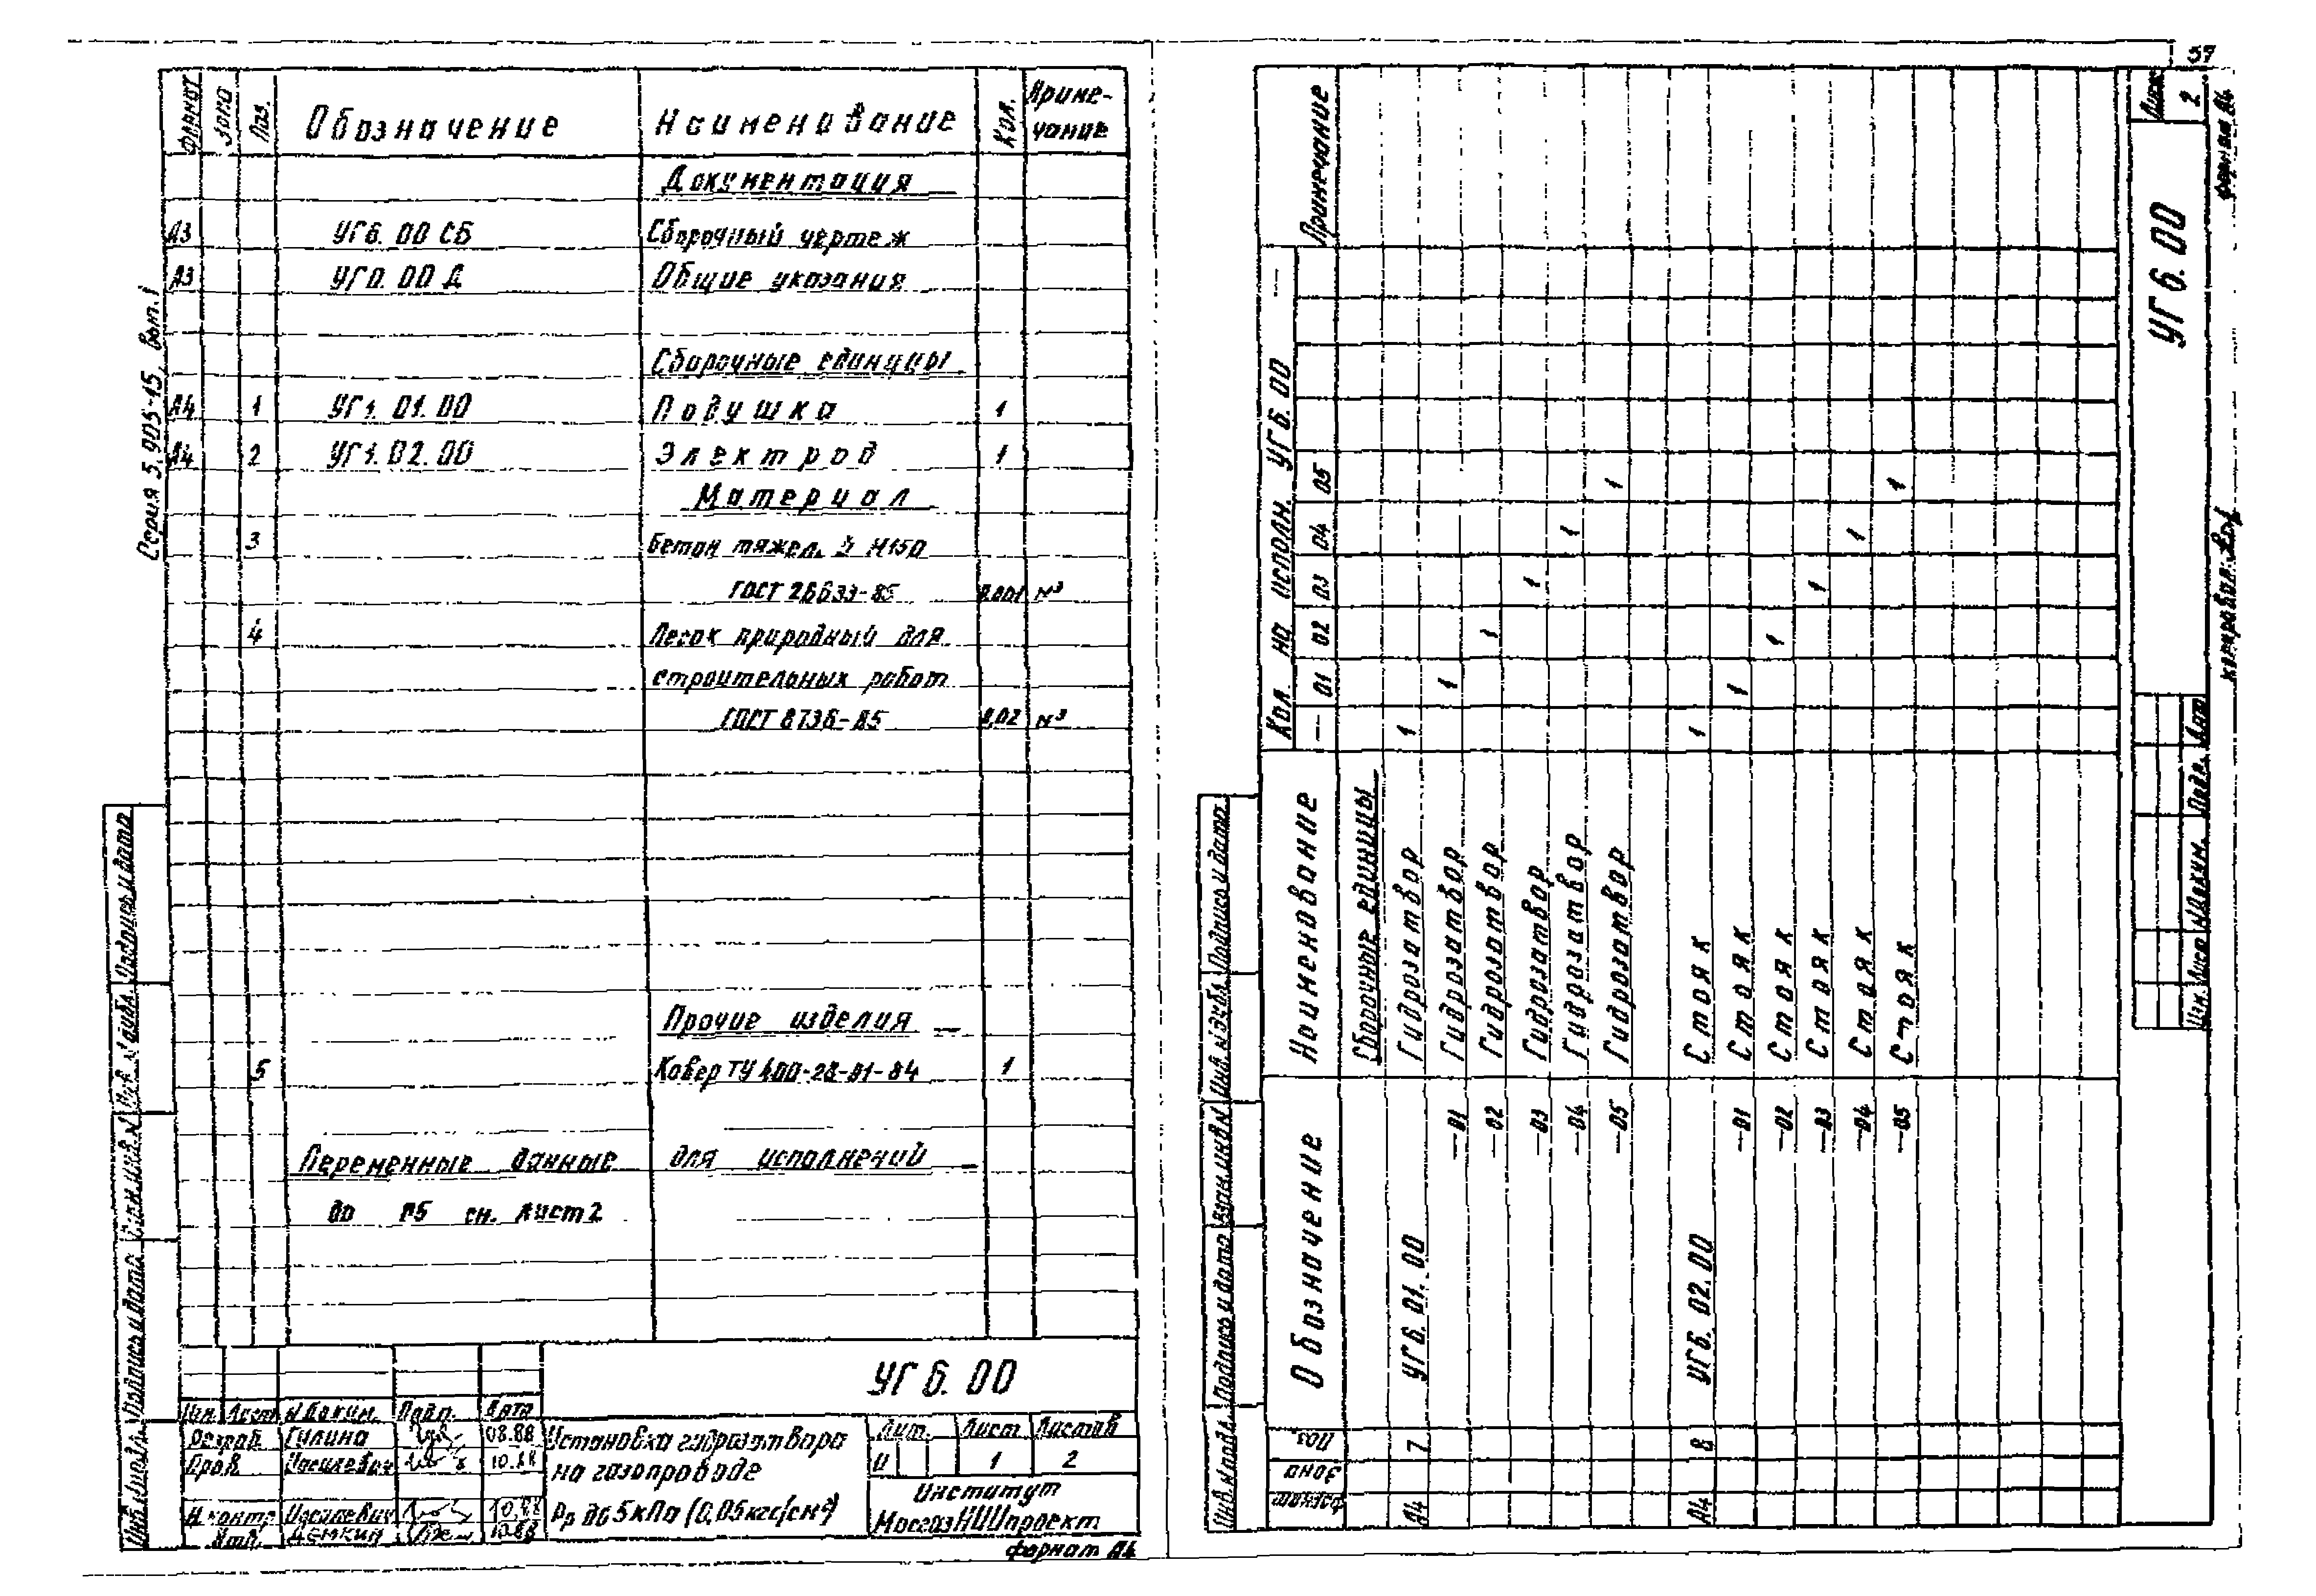 37
Серия 5.905-15, Вып.1
Формат Зона Поз. Обозначение Наименование Кол. Приме-
чание
Документация
А3 УГ6. 00 СБ Сборочный чертеж
А3 УГ0. 00 Д Общие указания
Сборочные единицы
А4 1 УГ1. 01. 00 Подушка 1
А4 2 УГ1. 02. 00 Электрод 1
Материал
3 Бетон тяжел. М150
ГОСТ 26633-85 0,001 м³
4 Песок природный для
строительных работ
ГОСТ 8736-85 0,02 м³
Прочие изделия
5 Ковер ТУ 400-28-91-84 1
Переменные данные для исполнений
до 05 см. лист 2
УГ 6. 00
Изм. Лист N докум. Подп. Дата
Разраб. Гулина 08.88
Пров.
Н.контр.
Утв. Демкин 10.88
Установка гидрозатвора
на газопроводе
Рр до 5 кПа (0,05 кгс/см²)
Лит. Лист Листов
И 1 2
Институт
МосгазНИИпроект
Формат А4
Инв. N подл. Подпись и дата Взам. инв. N Инв. N дубл. Подпись и дата
Формат Зона Поз. Обозначение Наименование Кол. на исполн. УГ 6. 00 — Примечание
— 01 02 03 04 05
Сборочные единицы
А4 7 УГ6. 01. 00 Гидрозатвор 1
—01 Гидрозатвор 1
—02 Гидрозатвор 1
—03 Гидрозатвор 1
—04 Гидрозатвор 1
—05 Гидрозатвор 1
А4 8 УГ6. 02. 00 Стояк 1
—01 Стояк 1
—02 Стояк 1
—03 Стояк 1
—04 Стояк 1
—05 Стояк 1
Инв. N подл. Подпись и дата Взам. инв. N Инв. N дубл. Подпись и дата
Изм. Лист N докум. Подп. Дат
УГ 6. 00
Лист
2
Копировал:
Формат А4